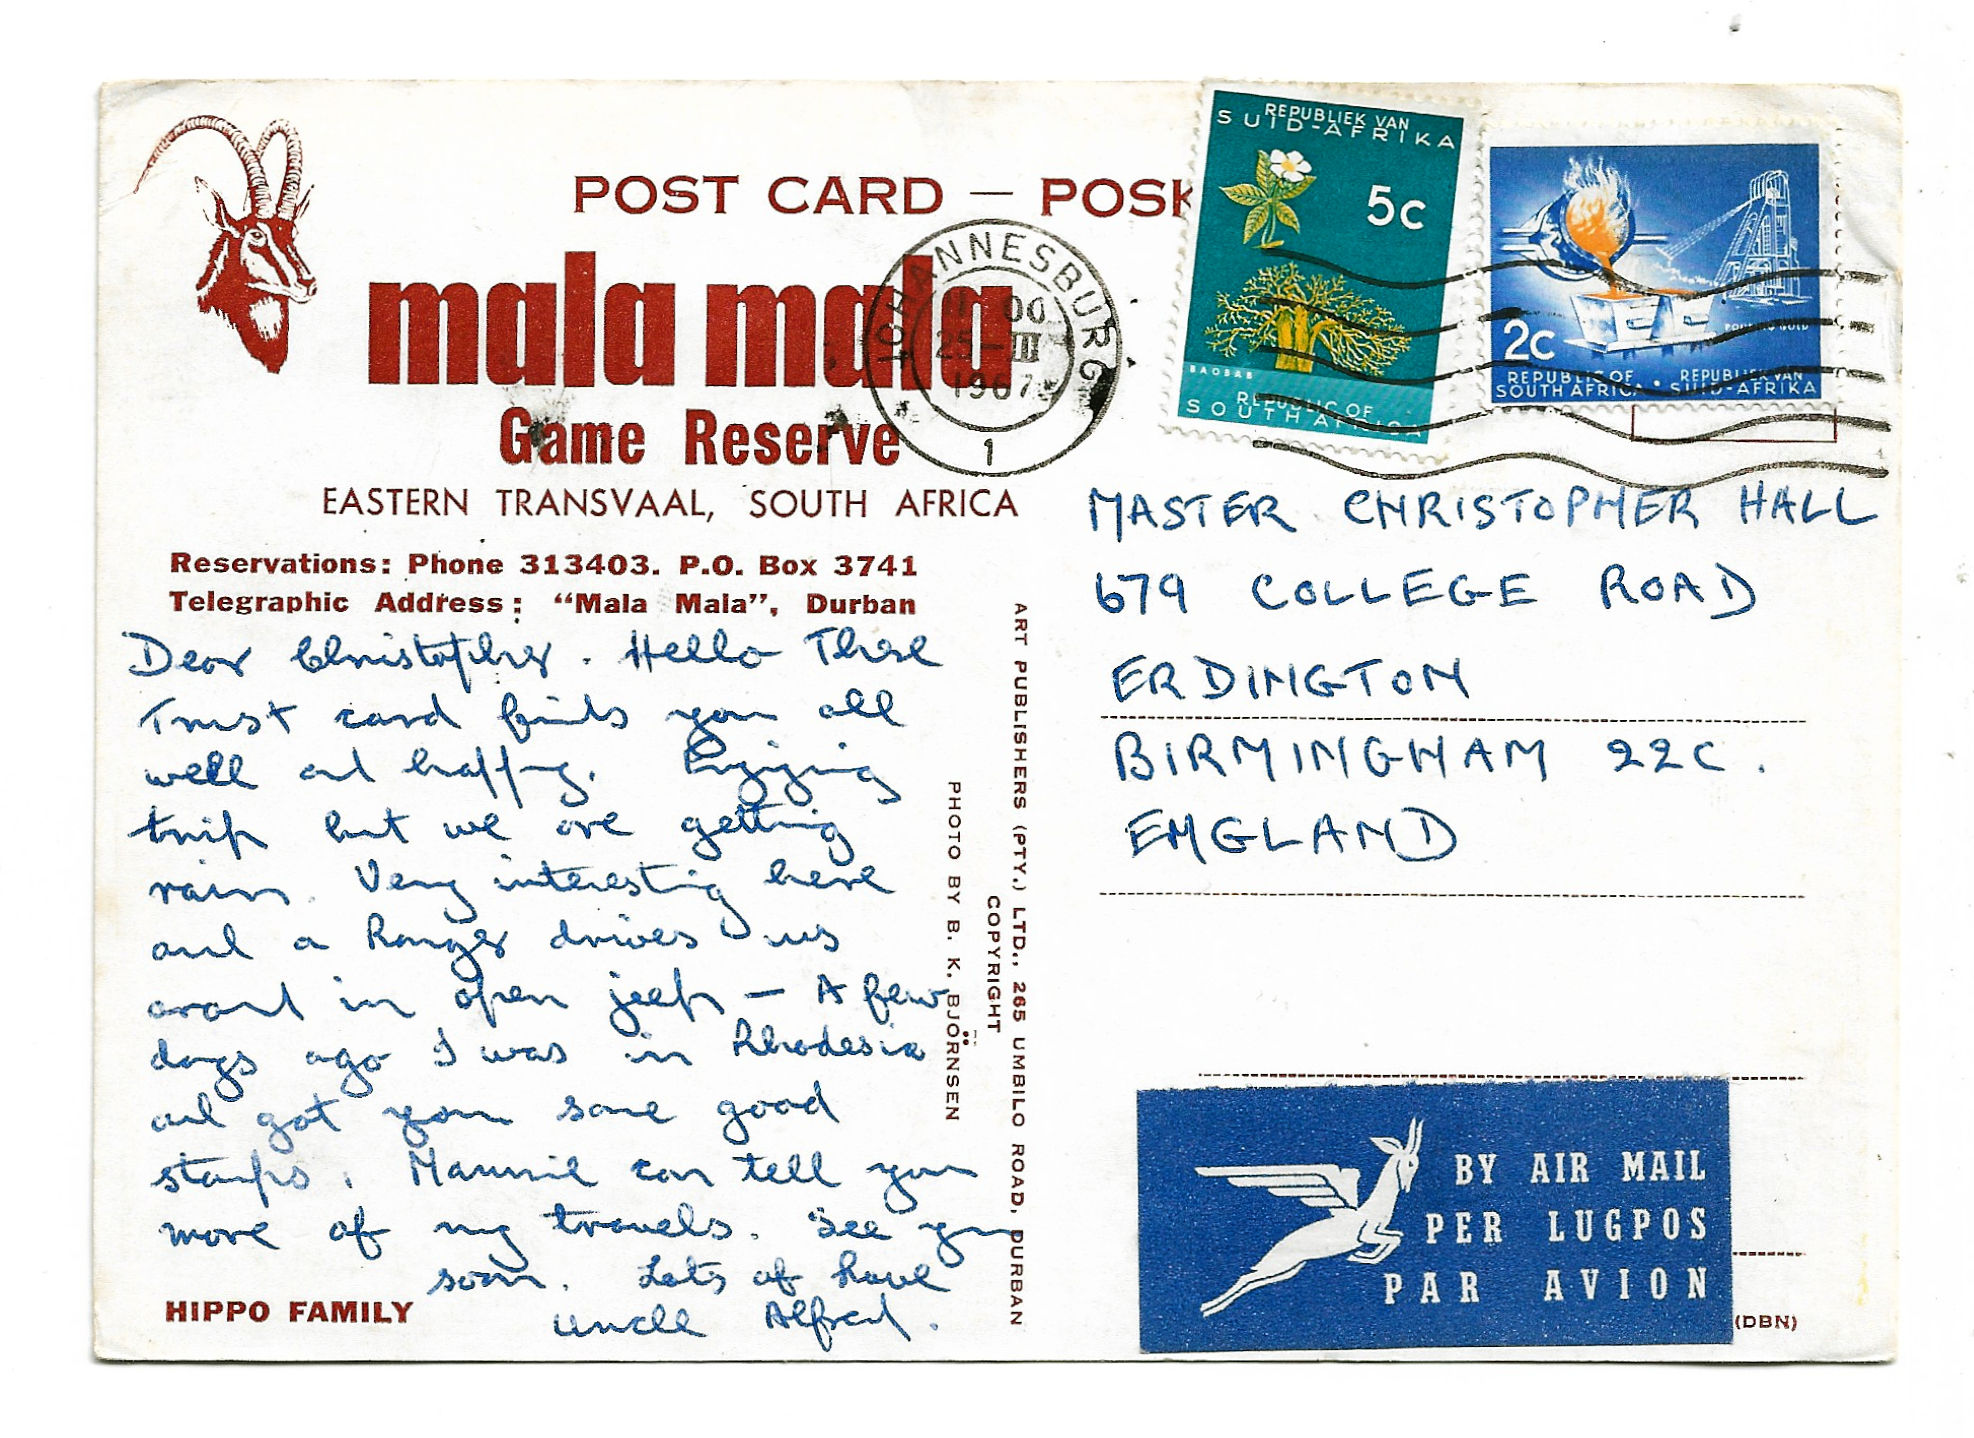 POST CARD — POSK
mala mala
Game Reserve
EASTERN TRANSVAAL, SOUTH AFRICA
Reservations: Phone 313403. P.O. Box 3741
Telegraphic Address: "Mala Mala", Durban
JOHANNESBURG
11 00
25-III
1967
1
REPUBLIEK VAN
SUID-AFRIKA
5c
BAOBAB
REPUBLIC OF
SOUTH AFRICA
2c
POURING GOLD
REPUBLIC OF · REPUBLIEK VAN
SOUTH AFRICA · SUID-AFRIKA
Dear Christopher. Hello There
Trust card finds you all
well and happy. Enjoying
trip but we are getting
rain. Very interesting here
and a Ranger drives us
around in open jeep — A few
days ago I was in Rhodesia
and got you some good
stamps. Mammie can tell you
more of my travels. See you
soon. Lots of love
Uncle Alfred.
HIPPO FAMILY
PHOTO BY B. K. BJÖRNSEN
COPYRIGHT
ART PUBLISHERS (PTY.) LTD., 265 UMBILO ROAD, DURBAN
MASTER CHRISTOPHER HALL
679 COLLEGE ROAD
ERDINGTON
BIRMINGHAM 22C.
ENGLAND
BY AIR MAIL
PER LUGPOS
PAR AVION
(DBN)